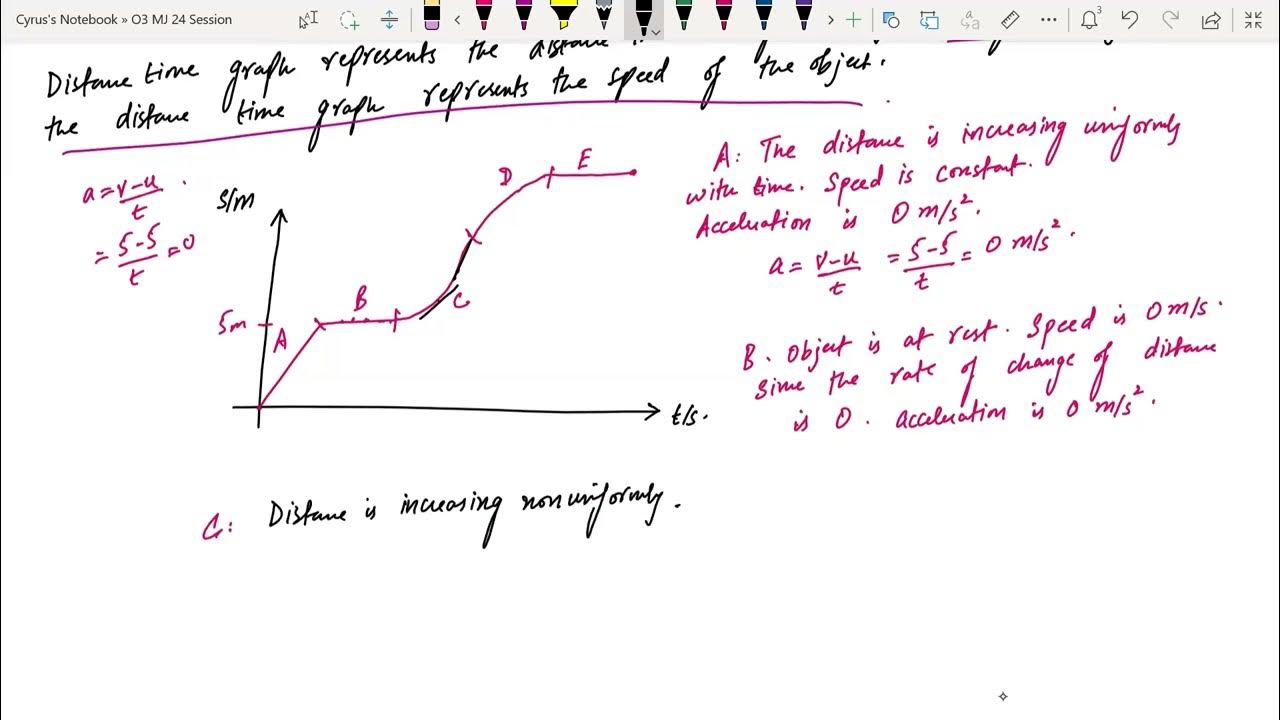 Cyrus's Notebook » O3 MJ 24 Session
3
Distance time graph represents the distance
the distance time graph represents the speed of the object.
a = v-u / t
= 5-5 / t = 0
S/m
5m
A
B
C
D
E
t/s.
A: The distance is increasing uniformly
with time. Speed is constant.
Acceleration is 0 m/s².
a = v-u / t = 5-5 / t = 0 m/s².
B. Object is at rest. Speed is 0 m/s.
Since the rate of change of distance
is 0. acceleration is 0 m/s².
C: Distance is increasing nonuniformly.